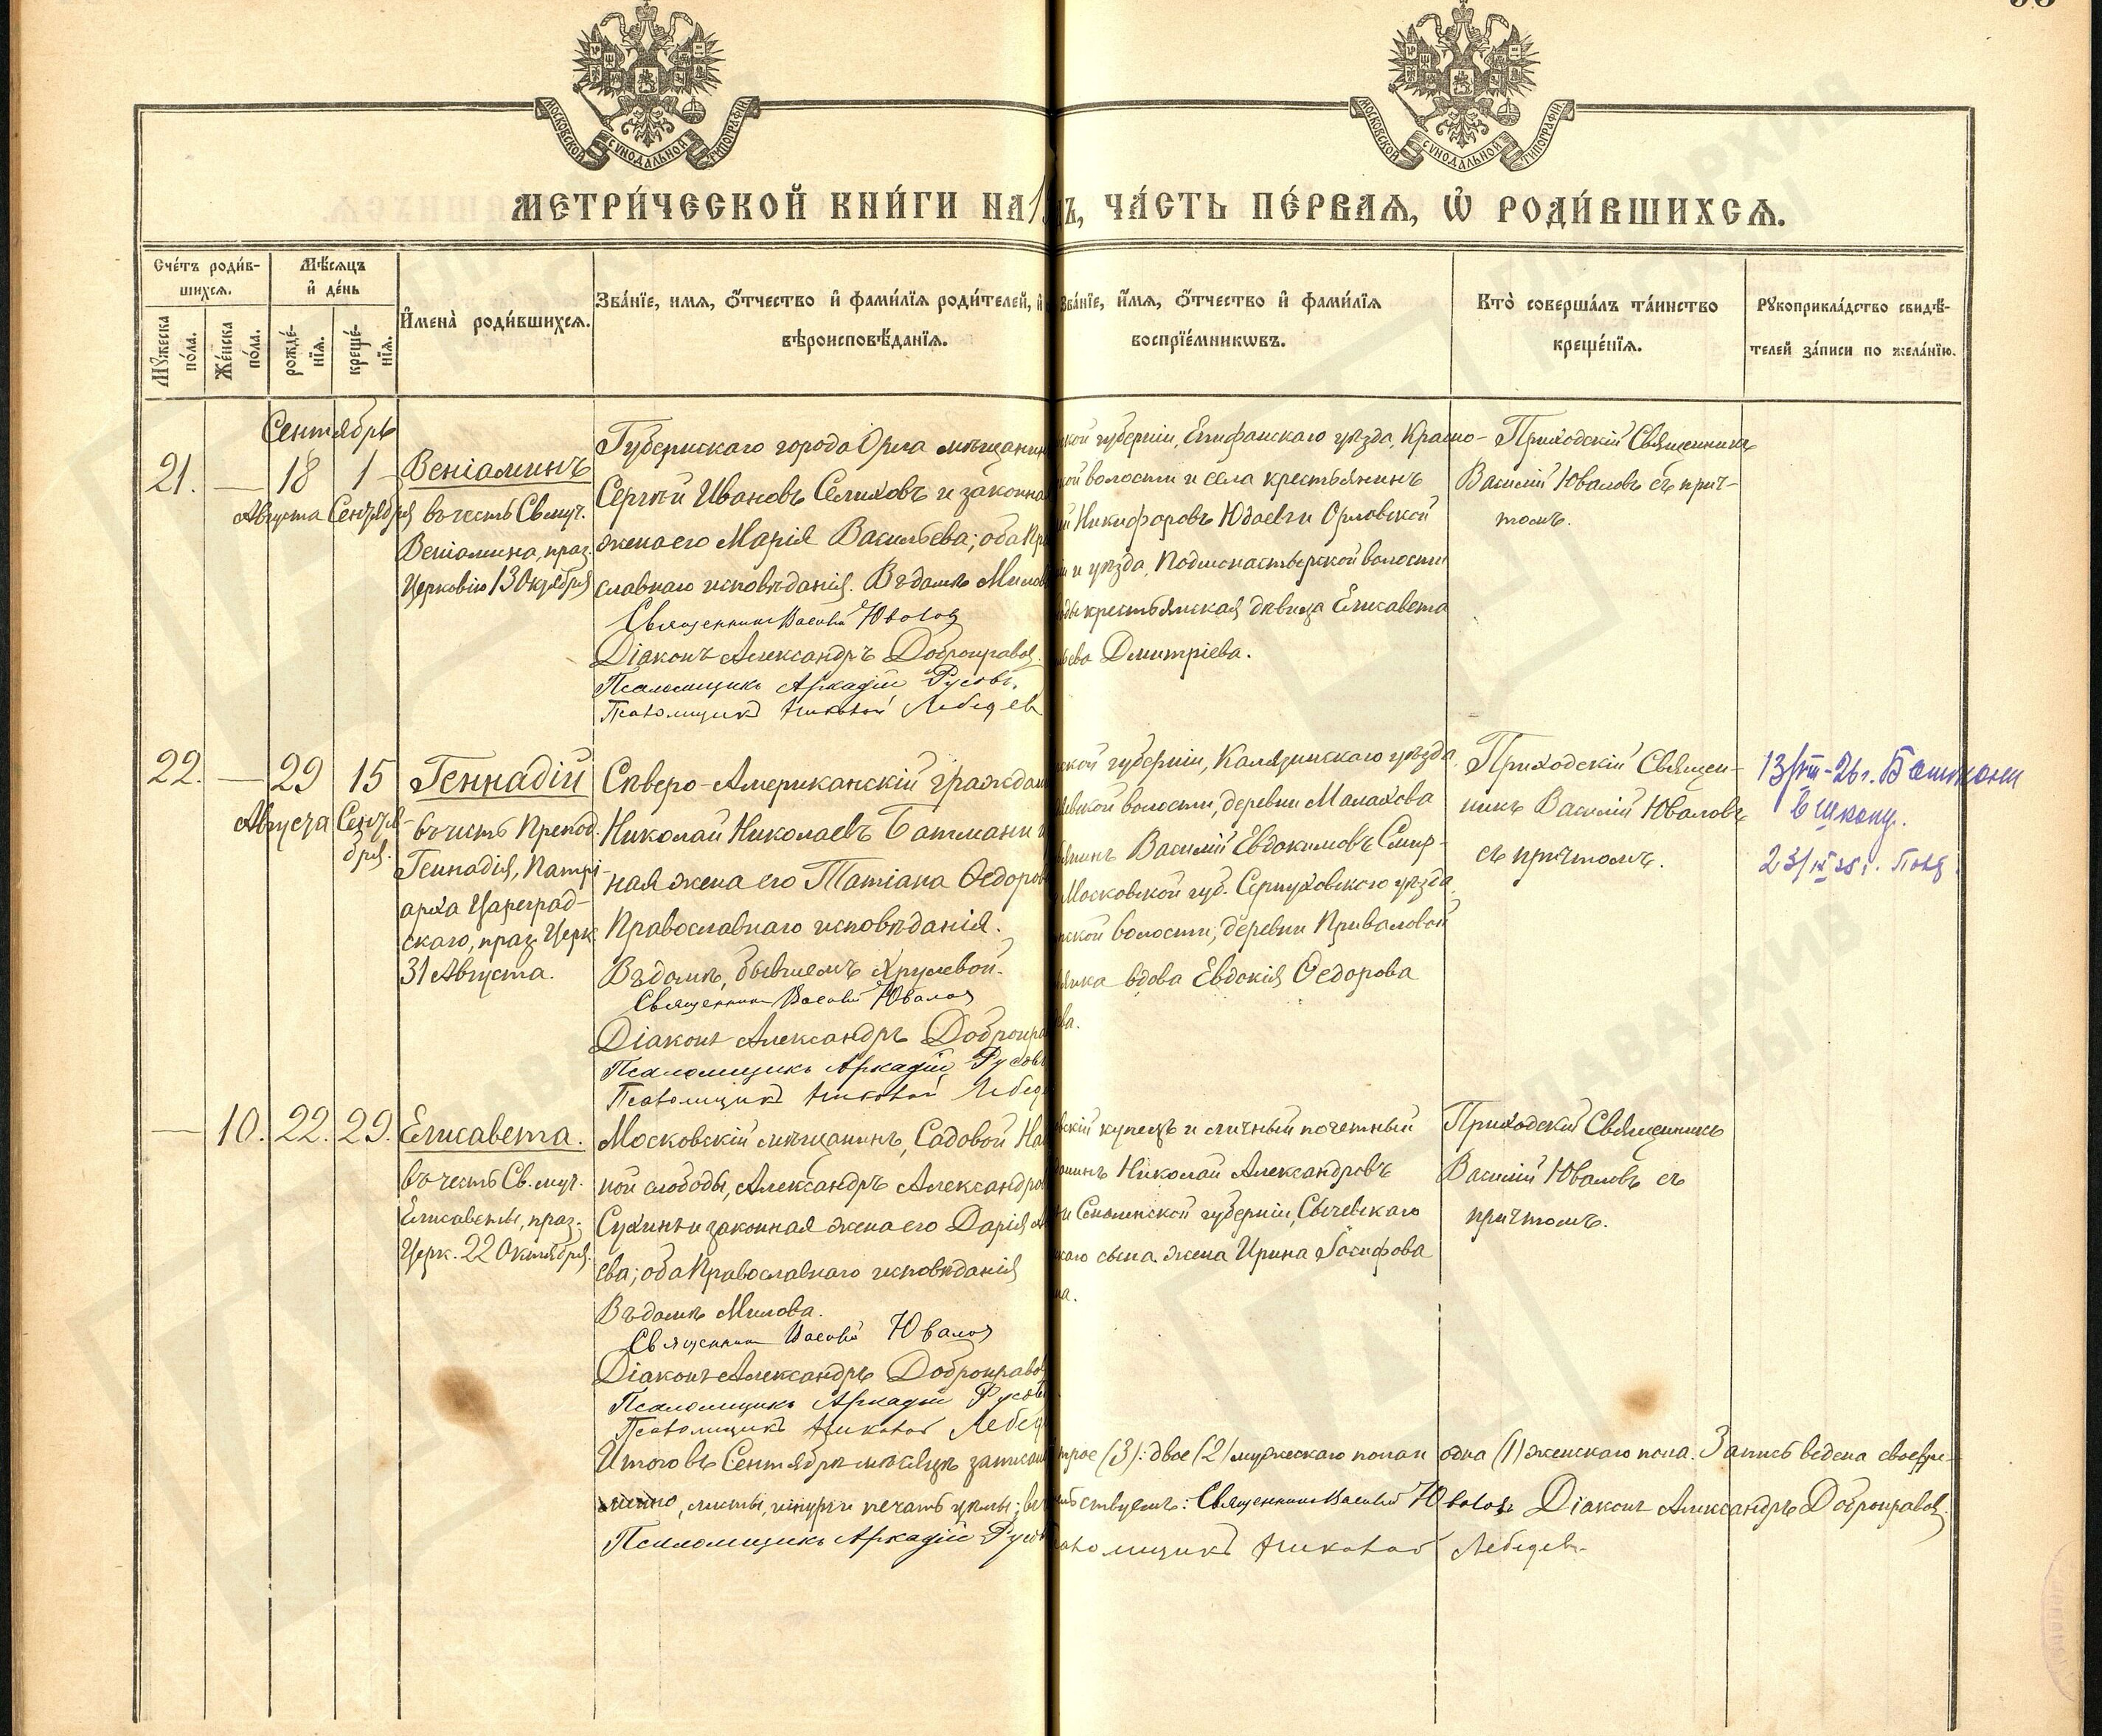 МОСКОВСКОЙ СѴНОДАЛЬНОЙ ТИПОГРАФІИ
МОСКОВСКОЙ СѴНОДАЛЬНОЙ ТИПОГРАФІИ
МЕТРИ́ЧЕСКОЙ КНИ́ГИ НА 1
Ъ, ЧА́СТЬ ПЕ́РВАѦ, Ѡ҆ РОДИ́ВШИХСѦ.
Сче́тъ роди́в-
шихсѧ.
Мѣ́сѧцъ
и҆ де́нь
Мꙋ́жеска
по́ла.
Же́нска
по́ла.
рожде́-
нїѧ.
креще́-
нїѧ.
И҆мена̀ роди́вшихсѧ.
Зва́нїе, имѧ, о҆́тчество и҆ фами́лїѧ роди́телей, и҆
вѣроисповѣ́данїѧ.
Зва́нїе, и҆́мѧ, о҆́тчество и҆ фами́лїѧ
воспрїе́мникѡвъ.
Кто̀ соверша́лъ та́инство
креще́нїѧ.
Рꙋкоприкла́дство свидѣ́-
телей за́писи по жела́нїю.
Сентябрь
21. — 18 1
Августа Сентября
Веніаминъ
въ честь Св. муч.
Веніамина, праз.
Церковію 13 Октября
Губернскаго города Орла мѣщанин
Сергѣй Ивановъ Селиховъ и законна
жена его Марія Васильева; оба Пр
славнаго исповѣданія. Въ домѣ Милов
Священникъ Василій Ювалов
Діаконъ Александръ Добронравов.
Псаломщикъ Аркадій Русовъ.
Псаломщикъ Николай Лебедев
ской губерніи, Епифанскаго уѣзда, Красно-
ой волости и села крестьянинъ
ій Никифоровъ Юдаевъ и Орловской
и и уѣзда, Подмонастырской волости
оды крестьянская дѣвица Елисавета
ьева Дмитріева.
Приходскій Священникъ
Василій Юваловъ съ прич-
томъ.
22. — 29 15
Августа Сентя-
бря.
Геннадій
въ честь Препод.
Геннадія, Патрі-
арха Цареград-
скаго, праз. Церк.
31 Августа.
Сѣверо-Американскій граждан
Николай Николаевъ Батмани
ная жена его Татіана Ѳедоров
Православнаго исповѣданія.
Въ домѣ, бывшемъ Хрулевой.
Священникъ Василій Ювалов
Діаконъ Александръ Добронра
Псаломщикъ Аркадій Русовъ
Псаломщикъ Николай Лебед
ской губерніи, Калязинскаго уѣзда,
евской волости, деревни Малахова
янинъ Василій Евдокимовъ Смир-
Московской губ. Серпуховскаго уѣзда,
ской волости, деревни Приваловой
янка вдова Евдокія Ѳедорова
ева.
Приходскій Священ-
никъ Василій Юваловъ
съ причтомъ.
13/VIII-26 г. Батмани
в школу.
— 10. 22. 29.
Елисавета.
въ честь Св. муч.
Елисаветы, праз.
Церк. 22 Октября.
Московскій мѣщанинъ, Садовой На
ной слободы, Александръ Александро
Сухинъ и законная жена его Дарія
ева; оба Православнаго исповѣданія
Въ домѣ Милова.
Священникъ Василій Ювалов
Діаконъ Александръ Добронравов
Псаломщикъ Аркадій Русовъ
Псаломщикъ Николай Лебед
вскій купецъ и личный почетный
данинъ Николай Александровъ
и Смоленской губерніи, Сычевскаго
скаго сына жена Ирина Іосифова
на.
Приходскій Священникъ
Василій Юваловъ съ
причтомъ.
Итого въ Сентябрѣ мѣсяцѣ записан
трое (3): двое (2) мужескаго пола и одна (1) женскаго пола. Запись ведена своевре-
менно, листы, шнуръ и печать цѣлы;
ствуемъ: Священникъ Василій Ювалов Діаконъ Александръ Добронравов.
Псаломщикъ Аркадій Русов
аломщикъ Николай Лебедевъ